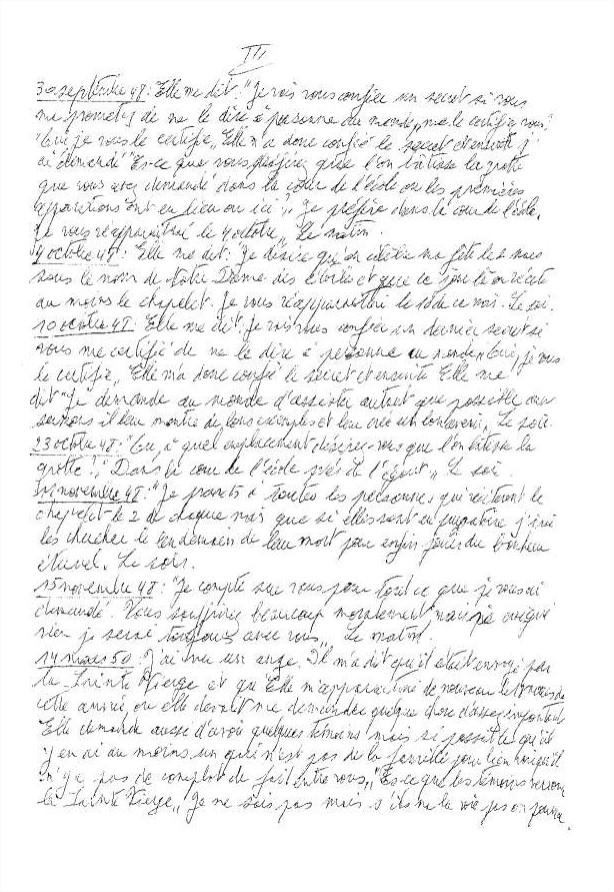 III
30 septembre 48: Elle me dit. "Je vais vous confier un secret si vous
me promettez de ne le dire à personne du monde, me le certifiez vous?
"Oui je vous le certifie,, Elle m'a donc confié le secret et ensuite j'
ai demandé "Es-ce que vous préférez que l'on bâtisse la grotte
que vous avez demandé dans la cour de l'école ou les premières
apparitions ont eu lieu ou ici?,, "Je préfère dans la cour de l'école.
Je vous réapparaitrai le 4 octobre,, Le matin.
4 octobre 48: Elle me dit: "Je désire qu'on célèbre ma fête le 2 mars
sous le nom de Notre Dame des et que ce jour là on récite
au moins le chapelet. Je vous réapparaitrai le 10 de ce mois. Le soir.
10 octobre 48. Elle me dit. Je vais vous confier un dernier secret si
vous me certifié de ne le dire à personne au monde,, "Oui, je vous
le certifie,, Elle m'a donc confié le secret et ensuite Elle me
dit "Je demande au monde d'assister autant que possible aux
sermons il leur montre de bons exemples et leur,, Le soir.
23 octobre 48: "Ou, à quel emplacement désirez-vous que l'on bâtisse la
grotte!,," Dans la cour de l'école près de l'égout,, Le soir.
novembre 48: "Je promets à toutes les personnes qui réciteront le
chapelet le 2 de chaque mois que si elles sont au purgatoire j'irai
les chercher le lendemain de leur mort pour enfin jouir du bonheur
éternel. Le soir.
15 novembre 48: "Je compte sur vous pour tout ce que je vous ai
demandé. Vous souffrirez beaucoup moralement mais ne craignez
rien je serai toujours avec vous,, Le matin.
14 mars 50: J'ai vu un ange. Il m'a dit qu'il était envoyé par
la Sainte Vierge et qu'Elle m'apparaitrai de nouveau le de
cette année, ou elle devait me demander quelque chose d'assez important
Elle demande aussi d'avoir quelques témoins mais si possible qu'il
y en ai au moins un qui n'est pas de la famille pour bien
n'y a pas de complot de fait entre vous,, "Es-ce que les témoins verront
la Sainte Vierge,, "Je ne sais pas mais s'ils ne la voie pas on pourra.